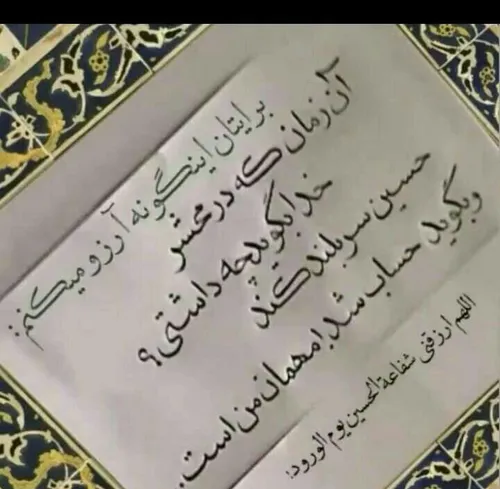 برایتان اینگونه آرزو میکنم:
آن زمان که در محشر
خدا بگوید چه داشتی؟
حسین سر بلند کند
وبگوید حساب شد! مهمان من است.
اللهم ارزقنی شفاعة الحسین یوم الورود: